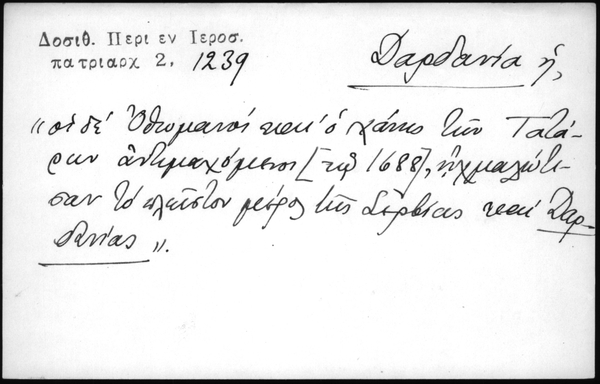 Δοσιθ. Περι εν Ιεροσ.
πατριαρχ 2, 1239
Δαρδανία ἡ,
«οἱ δέ Ὀθωμανοί καί ὁ χάνης τῶν Τατά-
ρων ἀντιμαχόμενοι [τῷ 1688], ᾐχμαλώτι-
σαν τό πλεῖστον μέρος τῆς Σερβίας καί Δαρ-
δανίας».